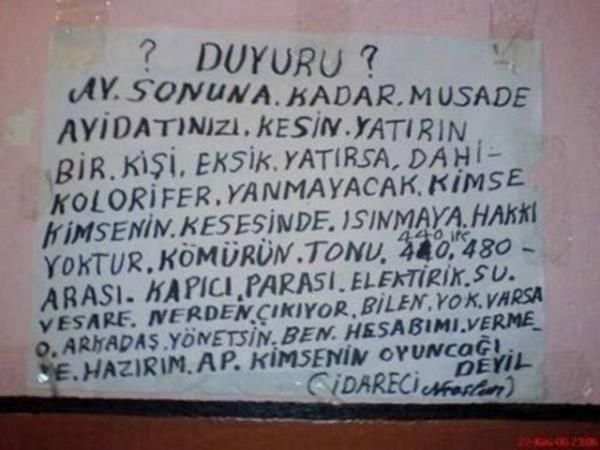 ? DUYURU ?
AY. SONUNA. KADAR. MUSADE
AYİDATINIZI. KESİN. YATIRIN
BİR. KİŞİ. EKSİK. YATIRSA. DAHİ-
KOLORİFER. YANMAYACAK. KİMSE
KİMSENİN. KESESİNDE. ISINMAYA. HAKKI
YOKTUR. KÖMÜRÜN. TONU. 440 İLE. 480 -
ARASI. KAPICI. PARASI. ELEKTİRİK. SU.
VESARE. NERDEN. ÇIKIYOR. BİLEN. YOK. VARSA
O. ARKADAŞ. YÖNETSİN. BEN. HESABIMI. VERME_
YE. HAZIRIM. AP. KİMSENİN OYUNCAĞI
DEYİL
(İDARECİ
22-Kas-06 23:06